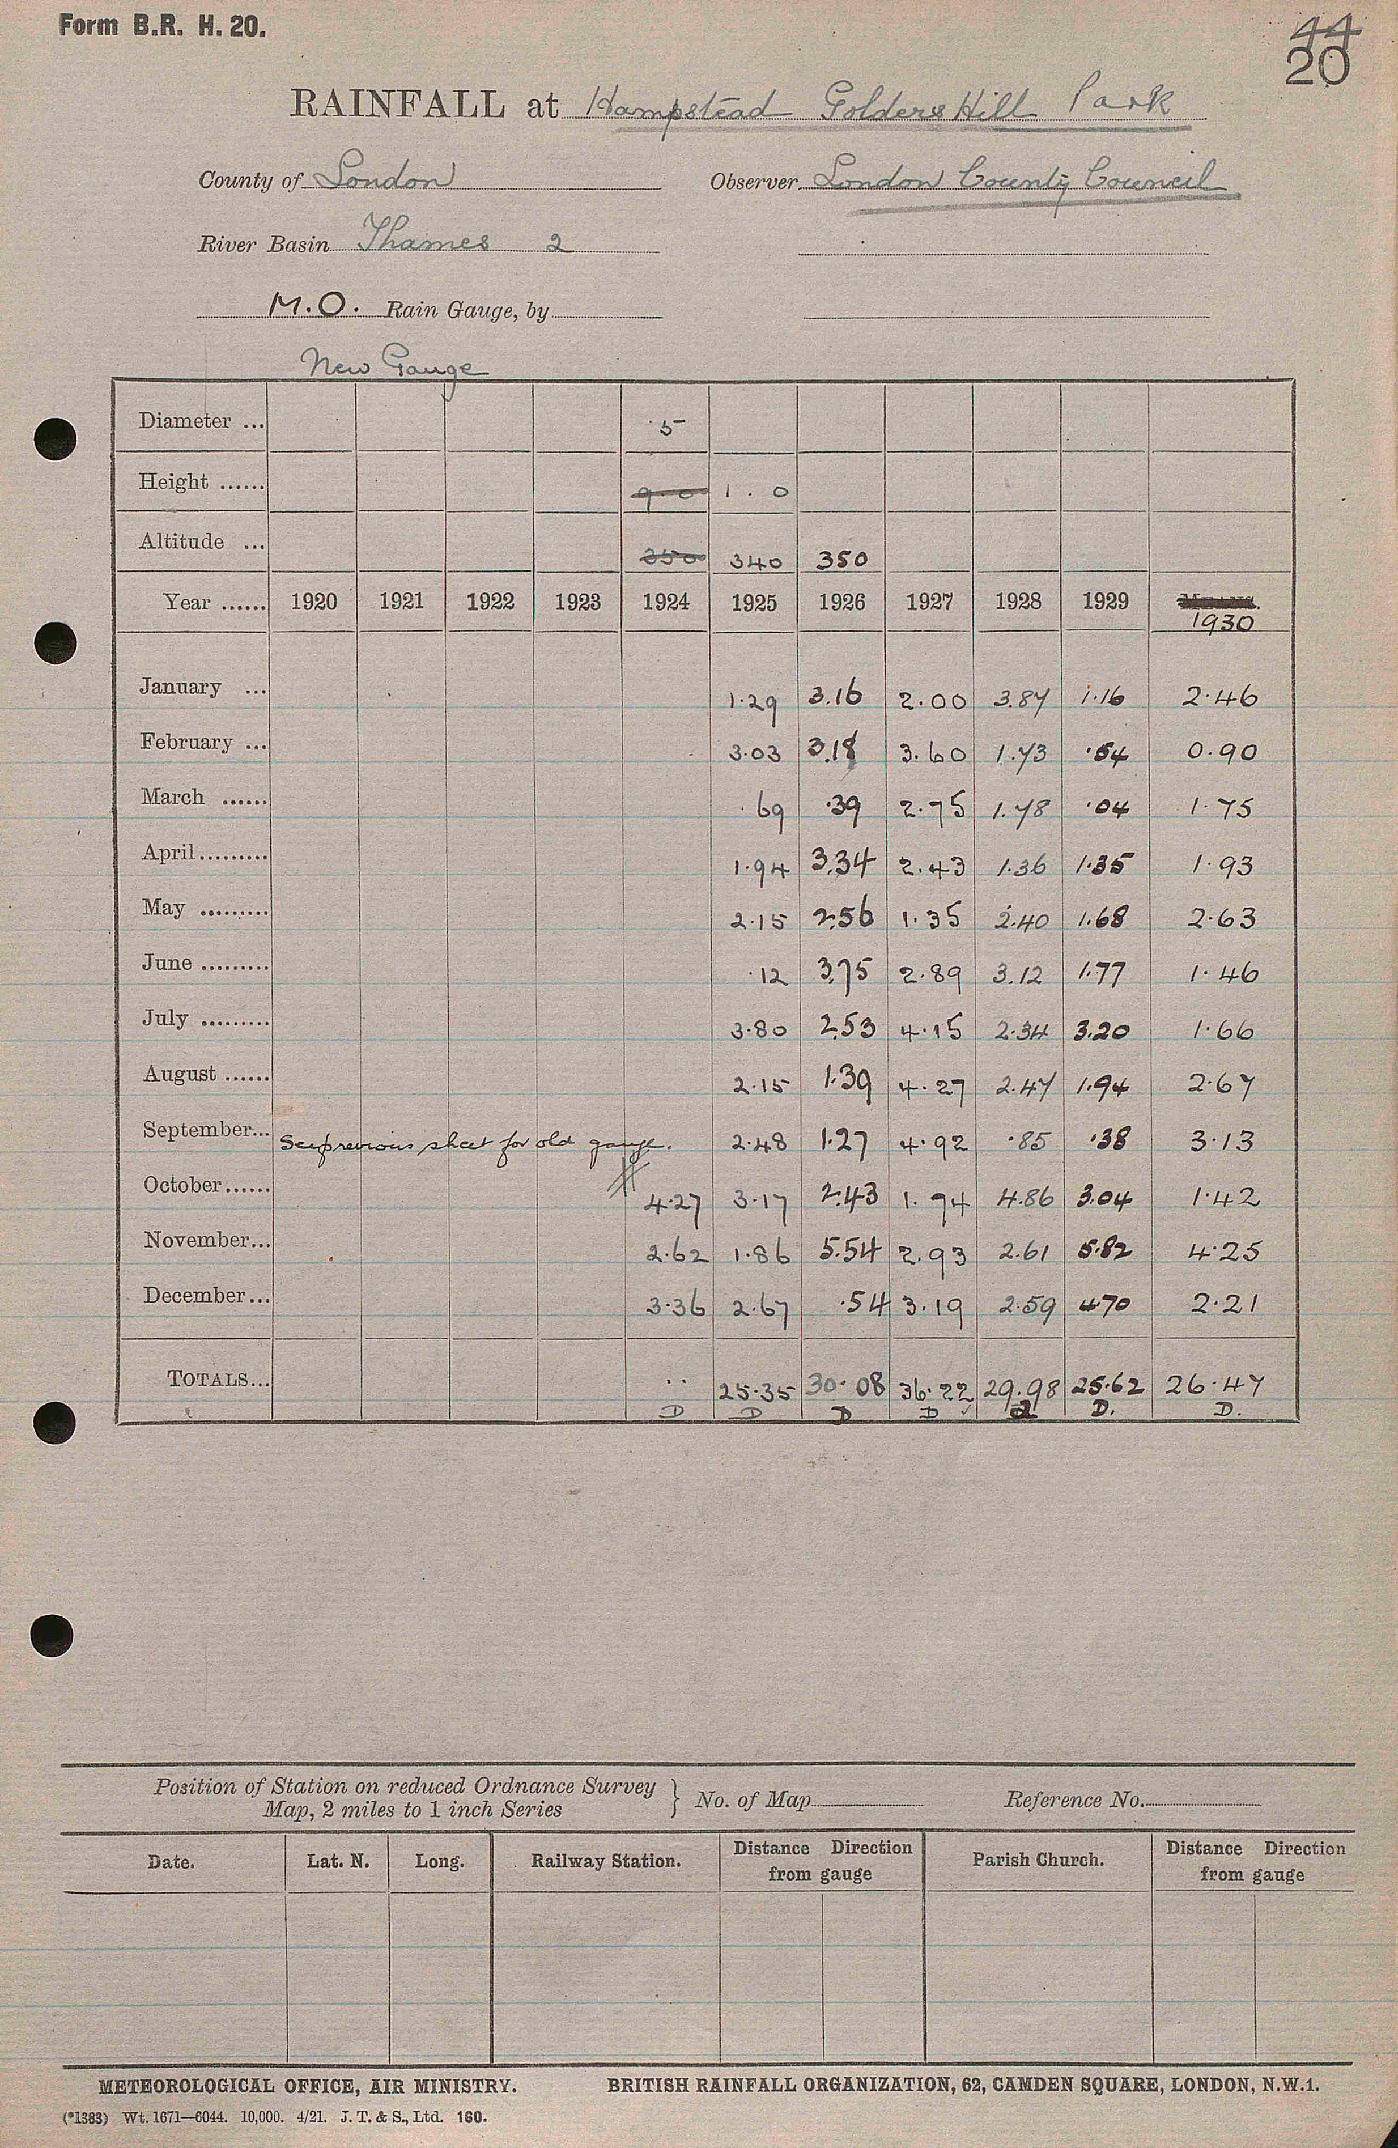 Form B.R. H. 20.
44
20
RAINFALL at Hampstead Golders Hill Park
County of London Observer London County Council
River Basin Thames 2
M.O. Rain Gauge, by
New Gauge
Diameter ... 5
Height ...... 9.0 1.0
Altitude ... 350 340 350
Year ...... 1920 1921 1922 1923 1924 1925 1926 1927 1928 1929 1930
January ... 1.29 3.16 2.00 3.87 1.16 2.46
February ... 3.03 3.18 3.60 1.73 .54 0.90
March ...... .69 .39 2.75 1.78 .04 1.75
April......... 1.94 3.34 2.43 1.36 1.35 1.93
May ......... 2.15 2.56 1.35 2.40 1.68 2.63
June ......... .12 3.75 2.89 3.12 1.77 1.46
July ......... 3.80 2.53 4.15 2.34 3.20 1.66
August ...... 2.15 1.39 4.27 2.47 1.94 2.67
September... See previous sheet for old gauge. 2.48 1.27 4.92 .85 .38 3.13
October...... 4.27 3.17 2.43 1.74 4.86 3.04 1.42
November... 2.62 1.86 5.54 2.93 2.61 5.82 4.25
December... 3.36 2.67 .54 3.19 2.59 4.70 2.21
TOTALS... .. 25.35 30.08 36.22 29.98 25.62 26.47
D D D D D D. D.
Position of Station on reduced Ordnance Survey
Map, 2 miles to 1 inch Series } No. of Map Reference No.
Date. Lat. N. Long. Railway Station. Distance Direction from gauge Parish Church. Distance Direction from gauge
METEOROLOGICAL OFFICE, AIR MINISTRY. BRITISH RAINFALL ORGANIZATION, 62, CAMDEN SQUARE, LONDON, N.W.1.
(*1383) Wt. 1671—6044. 10,000. 4/21. J. T. & S., Ltd. 160.